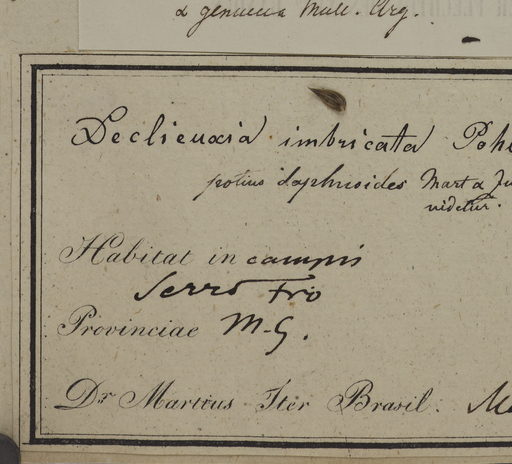 α genuina Mull. Arg.
Declieuxia imbricata Poh
potius daphnoides Mart &
videtur.
Habitat in campis
Serro Frio
Provinciae M-G.
Dr Martius Iter Brasil.